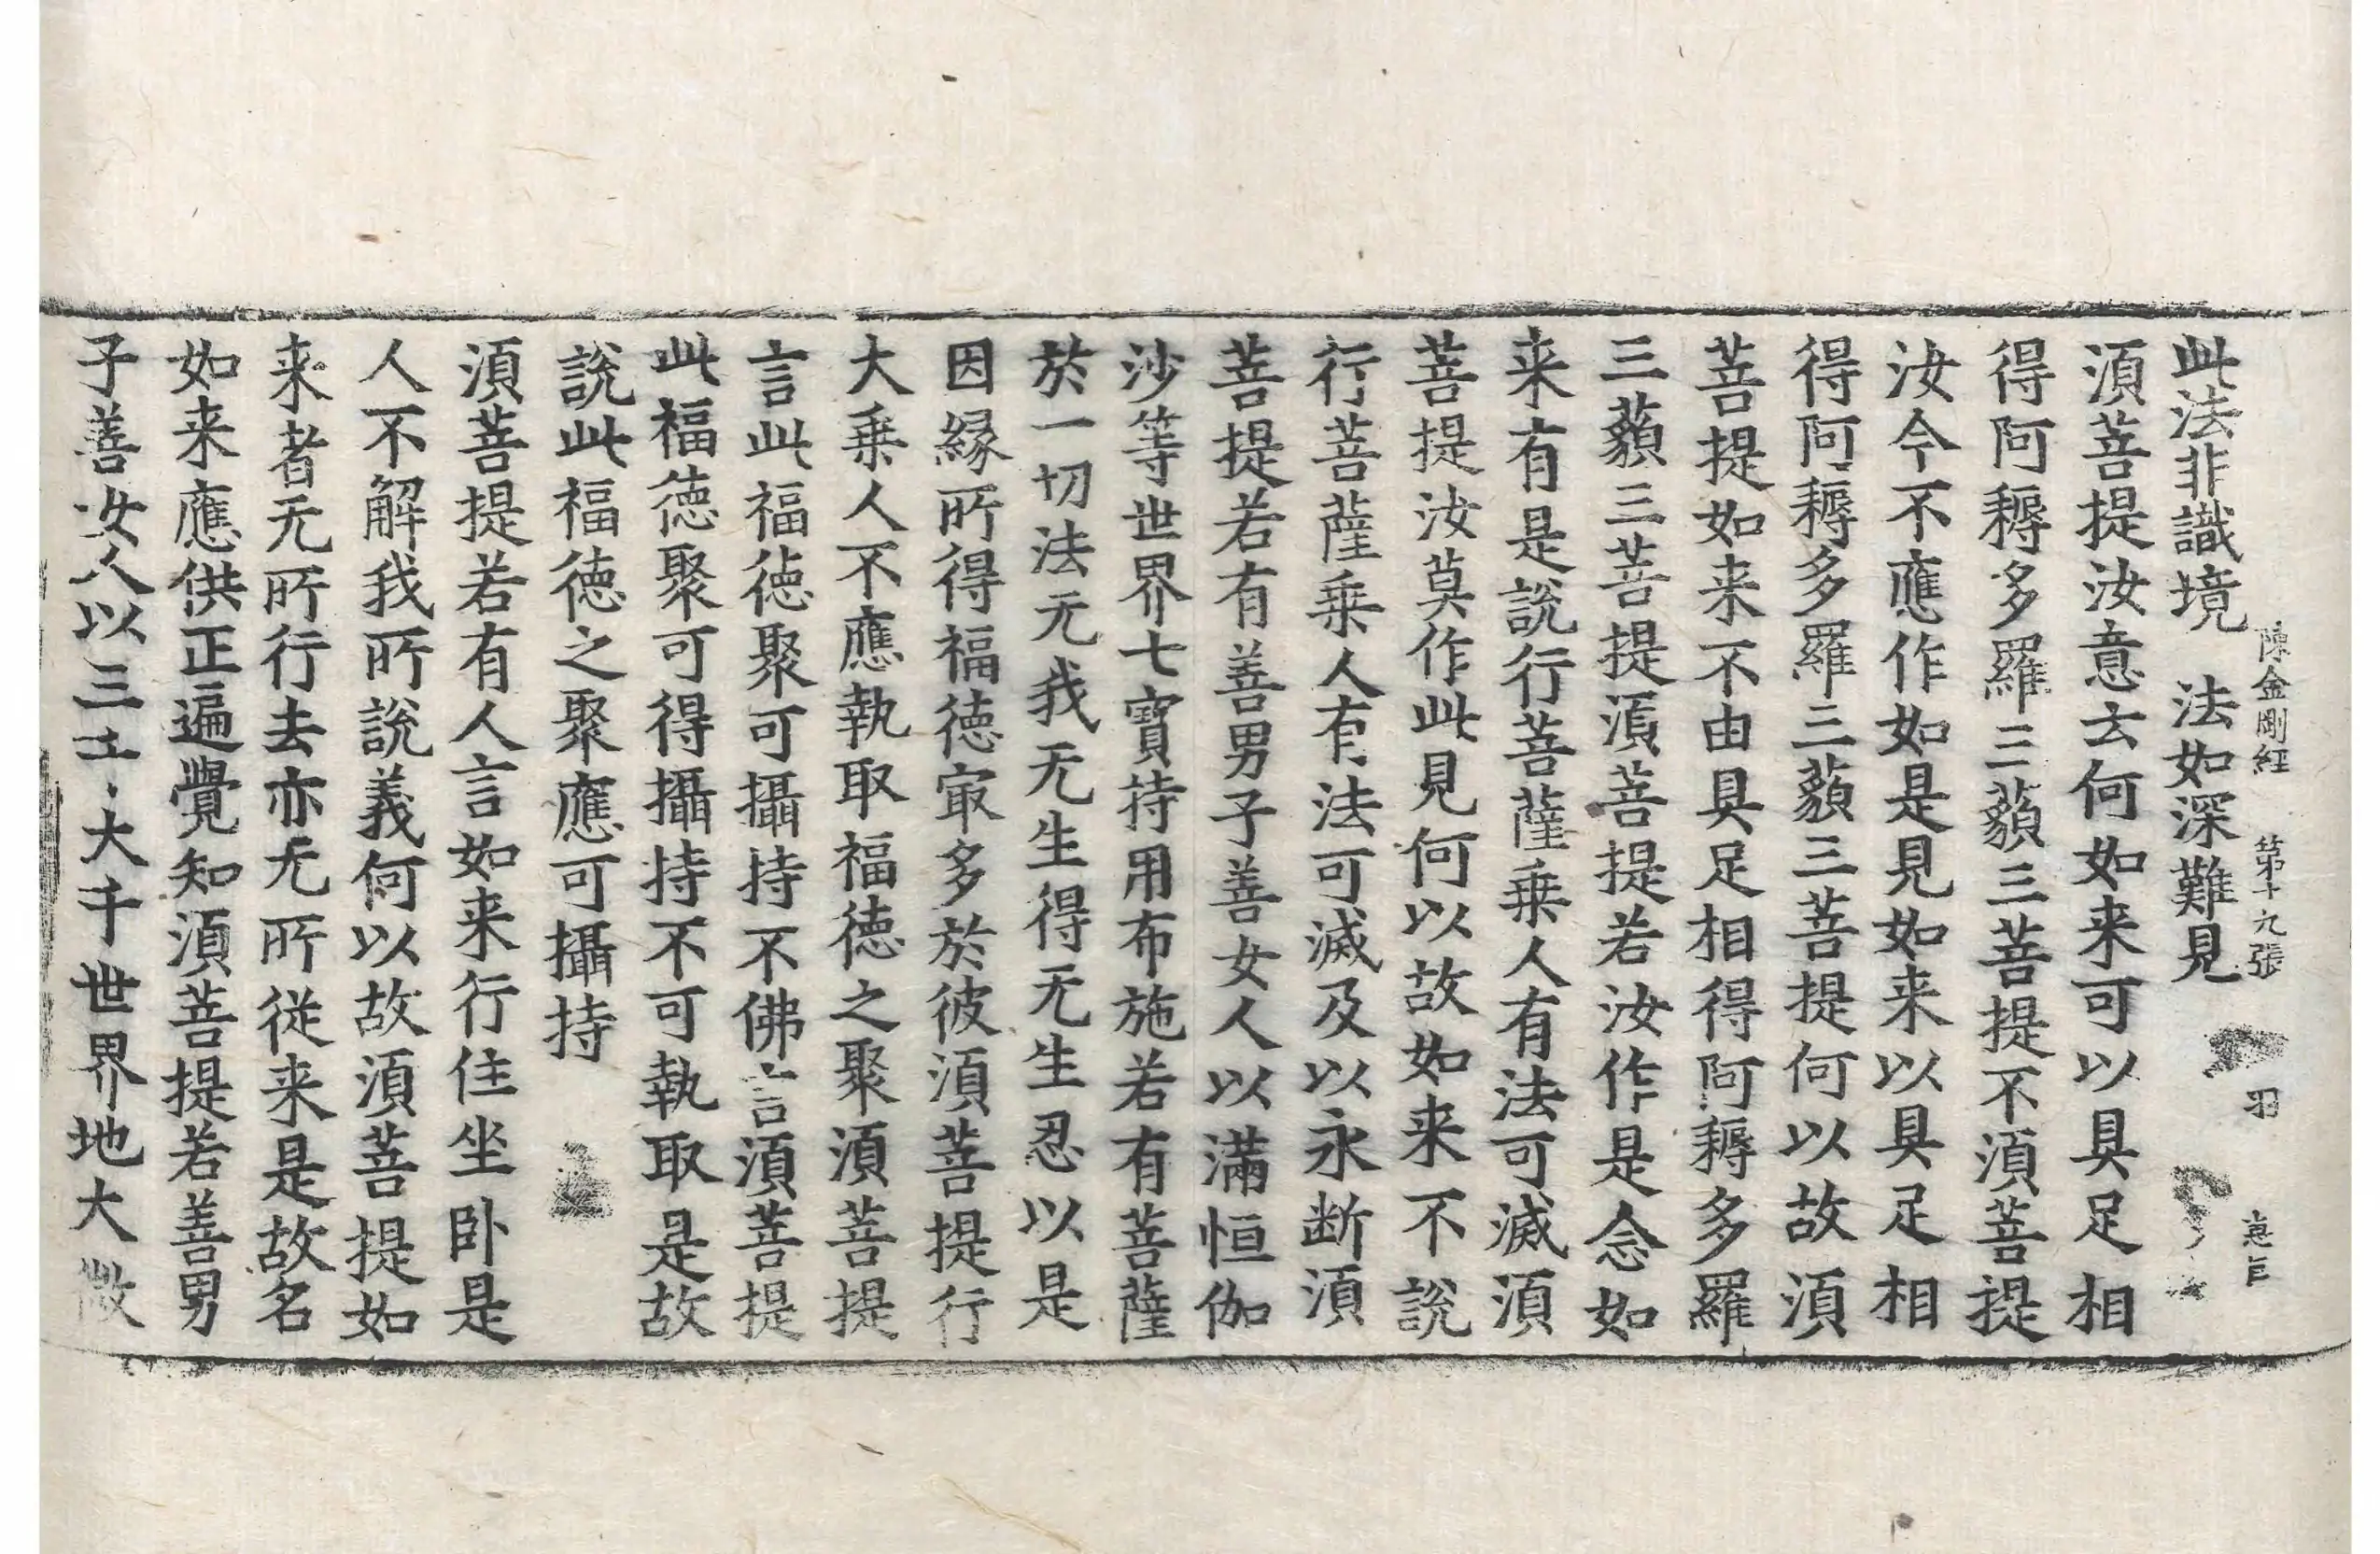 陳金剛經 第十九張 羽
此法非識境 法如深難見
湏菩提汝意云何如来可以具足相
得阿耨多羅三藐三菩提不湏菩提
汝今不應作如是見如来以具足相
得阿耨多羅三藐三菩提何以故湏
菩提如来不由具足相得阿耨多羅
三藐三菩提湏菩提若汝作是念如
来有是說行菩薩乗人有法可滅湏
菩提汝莫作此見何以故如来不說
行菩薩乗人有法可滅及以永断湏
菩提若有善男子善女人以滿恒伽
沙等世界七寶持用布施若有菩薩
於一切法无我无生得无生忍以是
因縁所得福徳冣多於彼湏菩提行
大乗人不應執取福徳之聚湏菩提
言此福徳聚可攝持不佛言湏菩提
此福徳聚可得攝持不可執取是故
說此福徳之聚應可攝持
湏菩提若有人言如来行住坐卧是
人不解我所說義何以故湏菩提如
来者无所行去亦无所従来是故名
如来應供正遍覺知湏菩提若善男
子善女人以三大千世界地大微